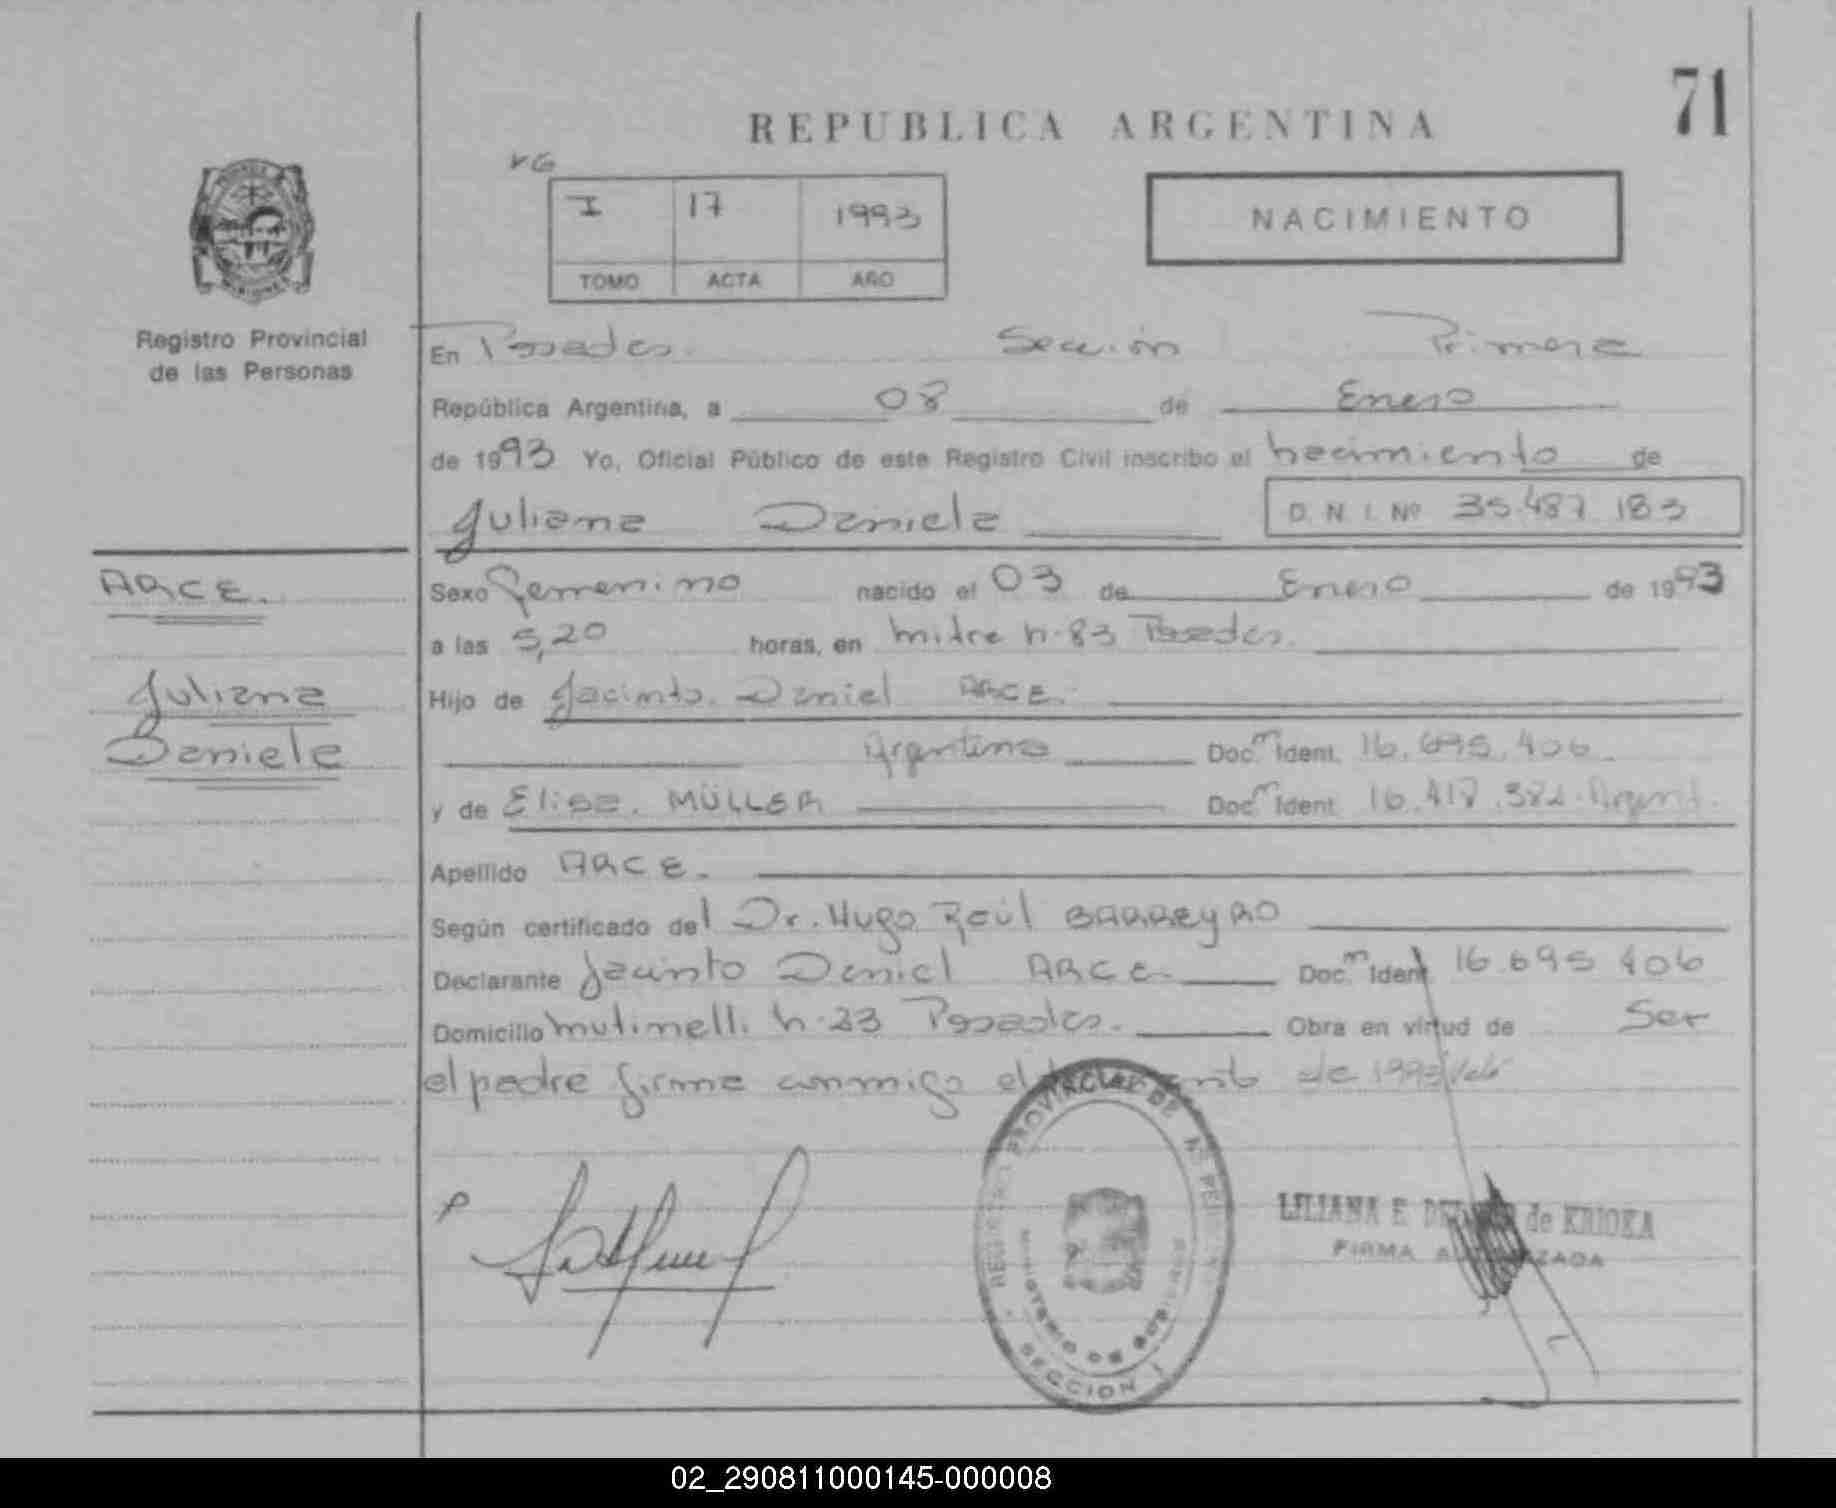 71
REPUBLICA ARGENTINA
I 17 1993
TOMO ACTA AÑO
NACIMIENTO
Registro Provincial
de las Personas
En Posadas. Sección Primera
República Argentina, a 08 de Enero
de 1993 Yo, Oficial Público de este Registro Civil inscribo el nacimiento de
Juliana Daniela D. N. I. Nº 35.487.183
ARCE.
Juliana
Daniela
Sexo femenino nacido el 03 de Enero de 1993
a las 5,20 horas, en mitre n.83 Posadas.
Hijo de Jacinto. Daniel ARCE.
Argentina Doc. Ident. 16.695.406.
y de Elisa. MÜLLER Doc. Ident. 16.417.382. Argent.
Apellido ARCE.
Según certificado del Dr. Hugo Raúl BARREYRO
Declarante Jacinto Daniel ARCE. Doc. Ident. 16.695.406
Domicilio mutinelli n.33 Posadas. Obra en virtud de Ser
el padre firma conmigo el de 1993
REGISTRO PROVINCIAL DE
MINISTERIO DE GOBIERNO
SECCION I
LILIANA E de KRIOKA
FIRMA AUTORIZADA
02_290811000145-000008